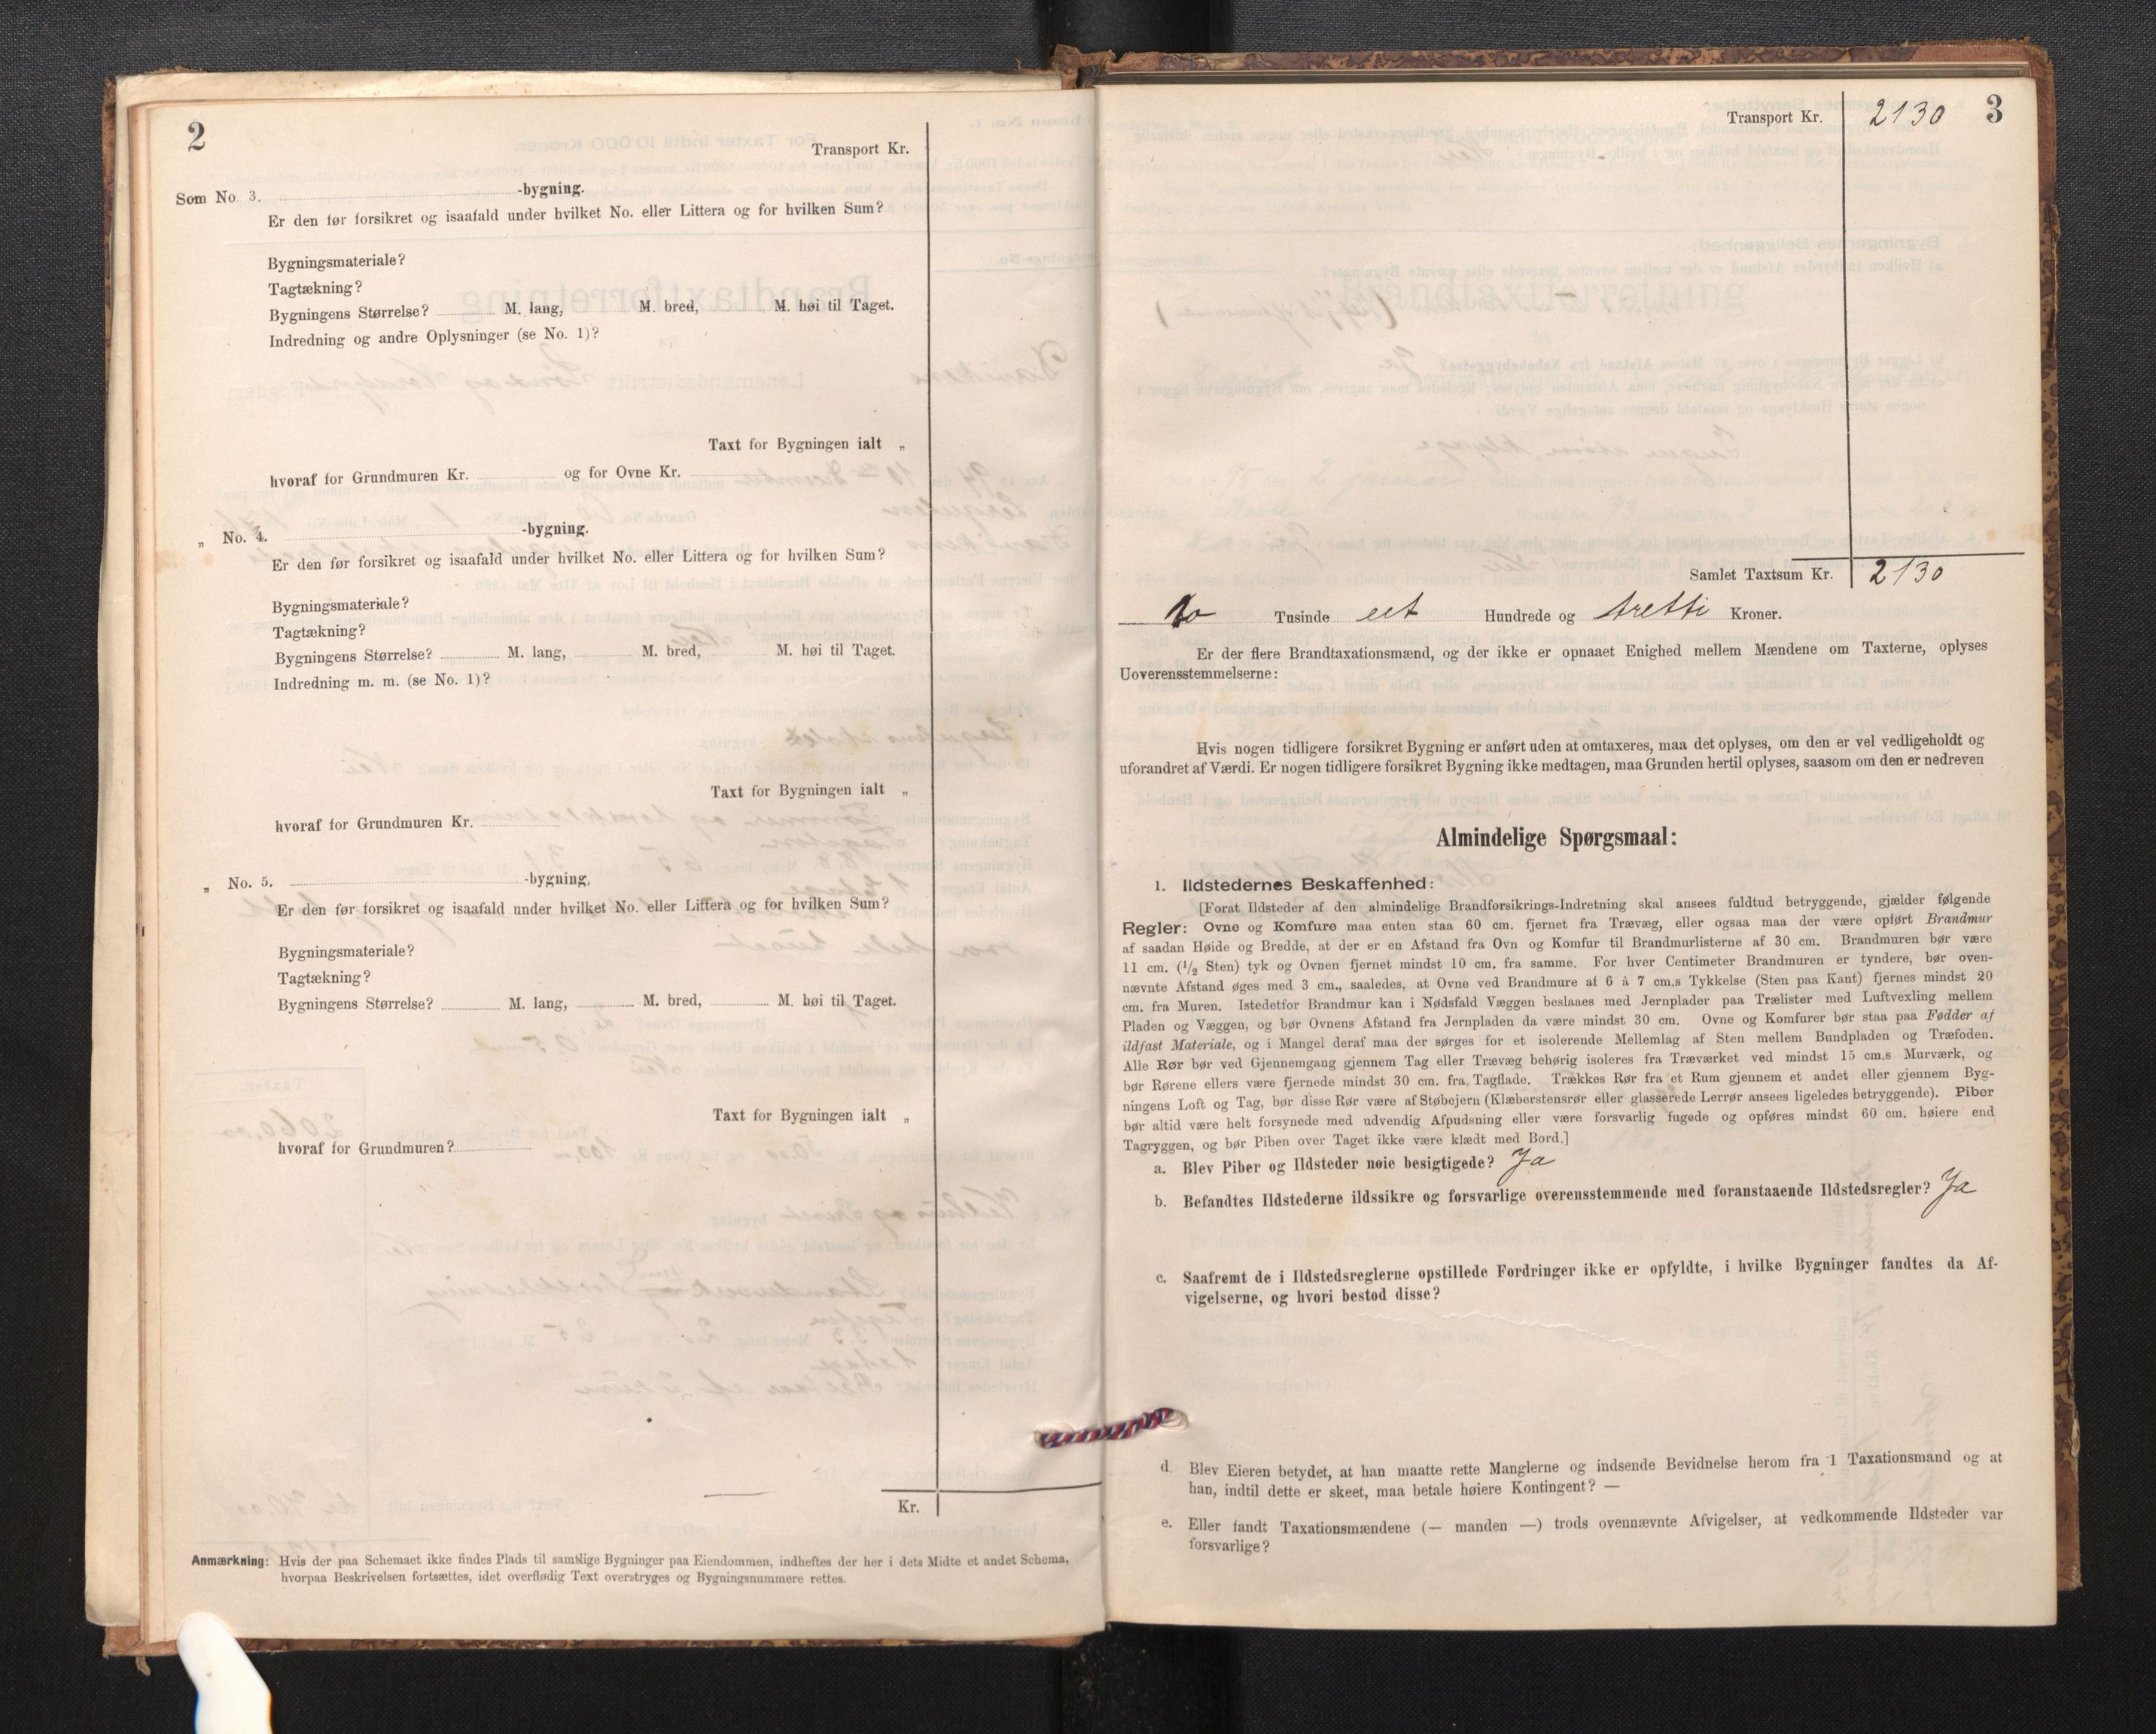 2
Transport Kr.
Som No. 3. -bygning.
Er den før forsikret og isaafald under hvilket No. eller Littera og for hvilken Sum?
Bygningsmateriale?
Tagtækning?
Bygningens Størrelse? M. lang, M. bred, M. høi til Taget.
Indredning og andre Oplysninger (se No. 1)?
Taxt for Bygningen ialt „
hvoraf for Grundmuren Kr. og for Ovne Kr.
„ No. 4. -bygning.
Er den før forsikret og isaafald under hvilket No. eller Littera og for hvilken Sum?
Bygningsmateriale?
Tagtækning?
Bygningens Størrelse? M. lang, M. bred, M. høi til Taget.
Indredning m. m. (se No. 1)?
Taxt for Bygningen ialt „
hvoraf for Grundmuren Kr.
„ No. 5. -bygning,
Er den før forsikret og isaafald under hvilket No. eller Littera og for hvilken Sum?
Bygningsmateriale?
Tagtækning?
Bygningens Størrelse? M. lang, M. bred, M. høi til Taget.
Taxt for Bygningen ialt „
hvoraf for Grundmuren?
Kr.
Anmærkning: Hvis der paa Schemaet ikke findes Plads til samtlige Bygninger paa Eiendommen, indheftes der her i dets Midte et andet Schema,
hvorpaa Beskrivelsen fortsættes, idet overflødig Text overstryges og Bygningsnummere rettes.
3
Transport Kr. 2130
Samlet Taxtsum Kr. 2130
to Tusinde eet Hundrede og tretti Kroner.
Er der flere Brandtaxationsmænd, og der ikke er opnaaet Enighed mellem Mændene om Taxterne, oplyses
Uoverensstemmelserne:
Hvis nogen tidligere forsikret Bygning er anført uden at omtaxeres, maa det oplyses, om den er vel vedligeholdt og
uforandret af Værdi. Er nogen tidligere forsikret Bygning ikke medtagen, maa Grunden hertil oplyses, saasom om den er nedreven
Almindelige Spørgsmaal:
1. Ildstedernes Beskaffenhed:
[Forat Ildsteder af den almindelige Brandforsikrings-Indretning skal ansees fuldtud betryggende, gjælder følgende
Regler: Ovne og Komfure maa enten staa 60 cm. fjernet fra Trævæg, eller ogsaa maa der være opført Brandmur
af saadan Høide og Bredde, at der er en Afstand fra Ovn og Komfur til Brandmurlisterne af 30 cm. Brandmuren bør være
11 cm. (1/2 Sten) tyk og Ovnen fjernet mindst 10 cm. fra samme. For hver Centimeter Brandmuren er tyndere, bør oven-
nævnte Afstand øges med 3 cm., saaledes, at Ovne ved Brandmure af 6 à 7 cm.s Tykkelse (Sten paa Kant) fjernes mindst 20
cm. fra Muren. Istedetfor Brandmur kan i Nødsfald Væggen beslaaes med Jernplader paa Trælister med Luftvexling mellem
Pladen og Væggen, og bør Ovnens Afstand fra Jernpladen da være mindst 30 cm. Ovne og Komfurer bør staa paa Fødder af
ildfast Materiale, og i Mangel deraf maa der sørges for et isolerende Mellemlag af Sten mellem Bundpladen og Træfoden.
Alle Rør bør ved Gjennemgang gjennem Tag eller Trævæg behørig isoleres fra Træværket ved mindst 15 cm.s Murværk, og
bør Rørene ellers være fjernede mindst 30 cm. fra Tagflade. Trækkes Rør fra et Rum gjennem et andet eller gjennem Byg-
ningens Loft og Tag, bør disse Rør være af Støbejern (Klæberstensrør eller glasserede Lerrør ansees ligeledes betryggende). Piber
bør altid være helt forsynede med udvendig Afpudsning eller være forsvarlig fugede og opføres mindst 60 cm. høiere end
Tagryggen, og bør Piben over Taget ikke være klædt med Bord.]
a. Blev Piber og Ildsteder nøie besigtigede? Ja
b. Befandtes Ildstederne ildssikre og forsvarlige overensstemmende med foranstaaende Ildstedsregler? Ja
c. Saafremt de i Ildstedsreglerne opstillede Fordringer ikke er opfyldte, i hvilke Bygninger fandtes da Af-
vigelserne, og hvori bestod disse?
d. Blev Eieren betydet, at han maatte rette Manglerne og indsende Bevidnelse herom fra 1 Taxationsmand og at
han, indtil dette er skeet, maa betale høiere Kontingent? —
e. Eller fandt Taxationsmændene (— manden —) trods ovennævnte Afvigelser, at vedkommende Ildsteder var
forsvarlige?